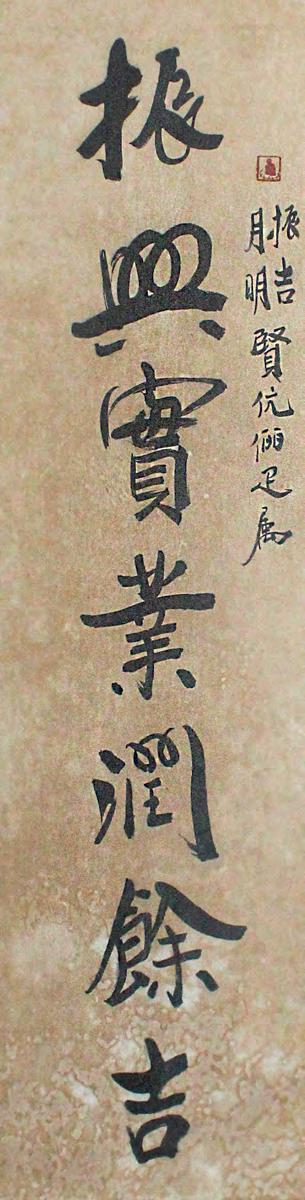 振吉
月明
賢伉俪疋属
振興實業潤餘吉